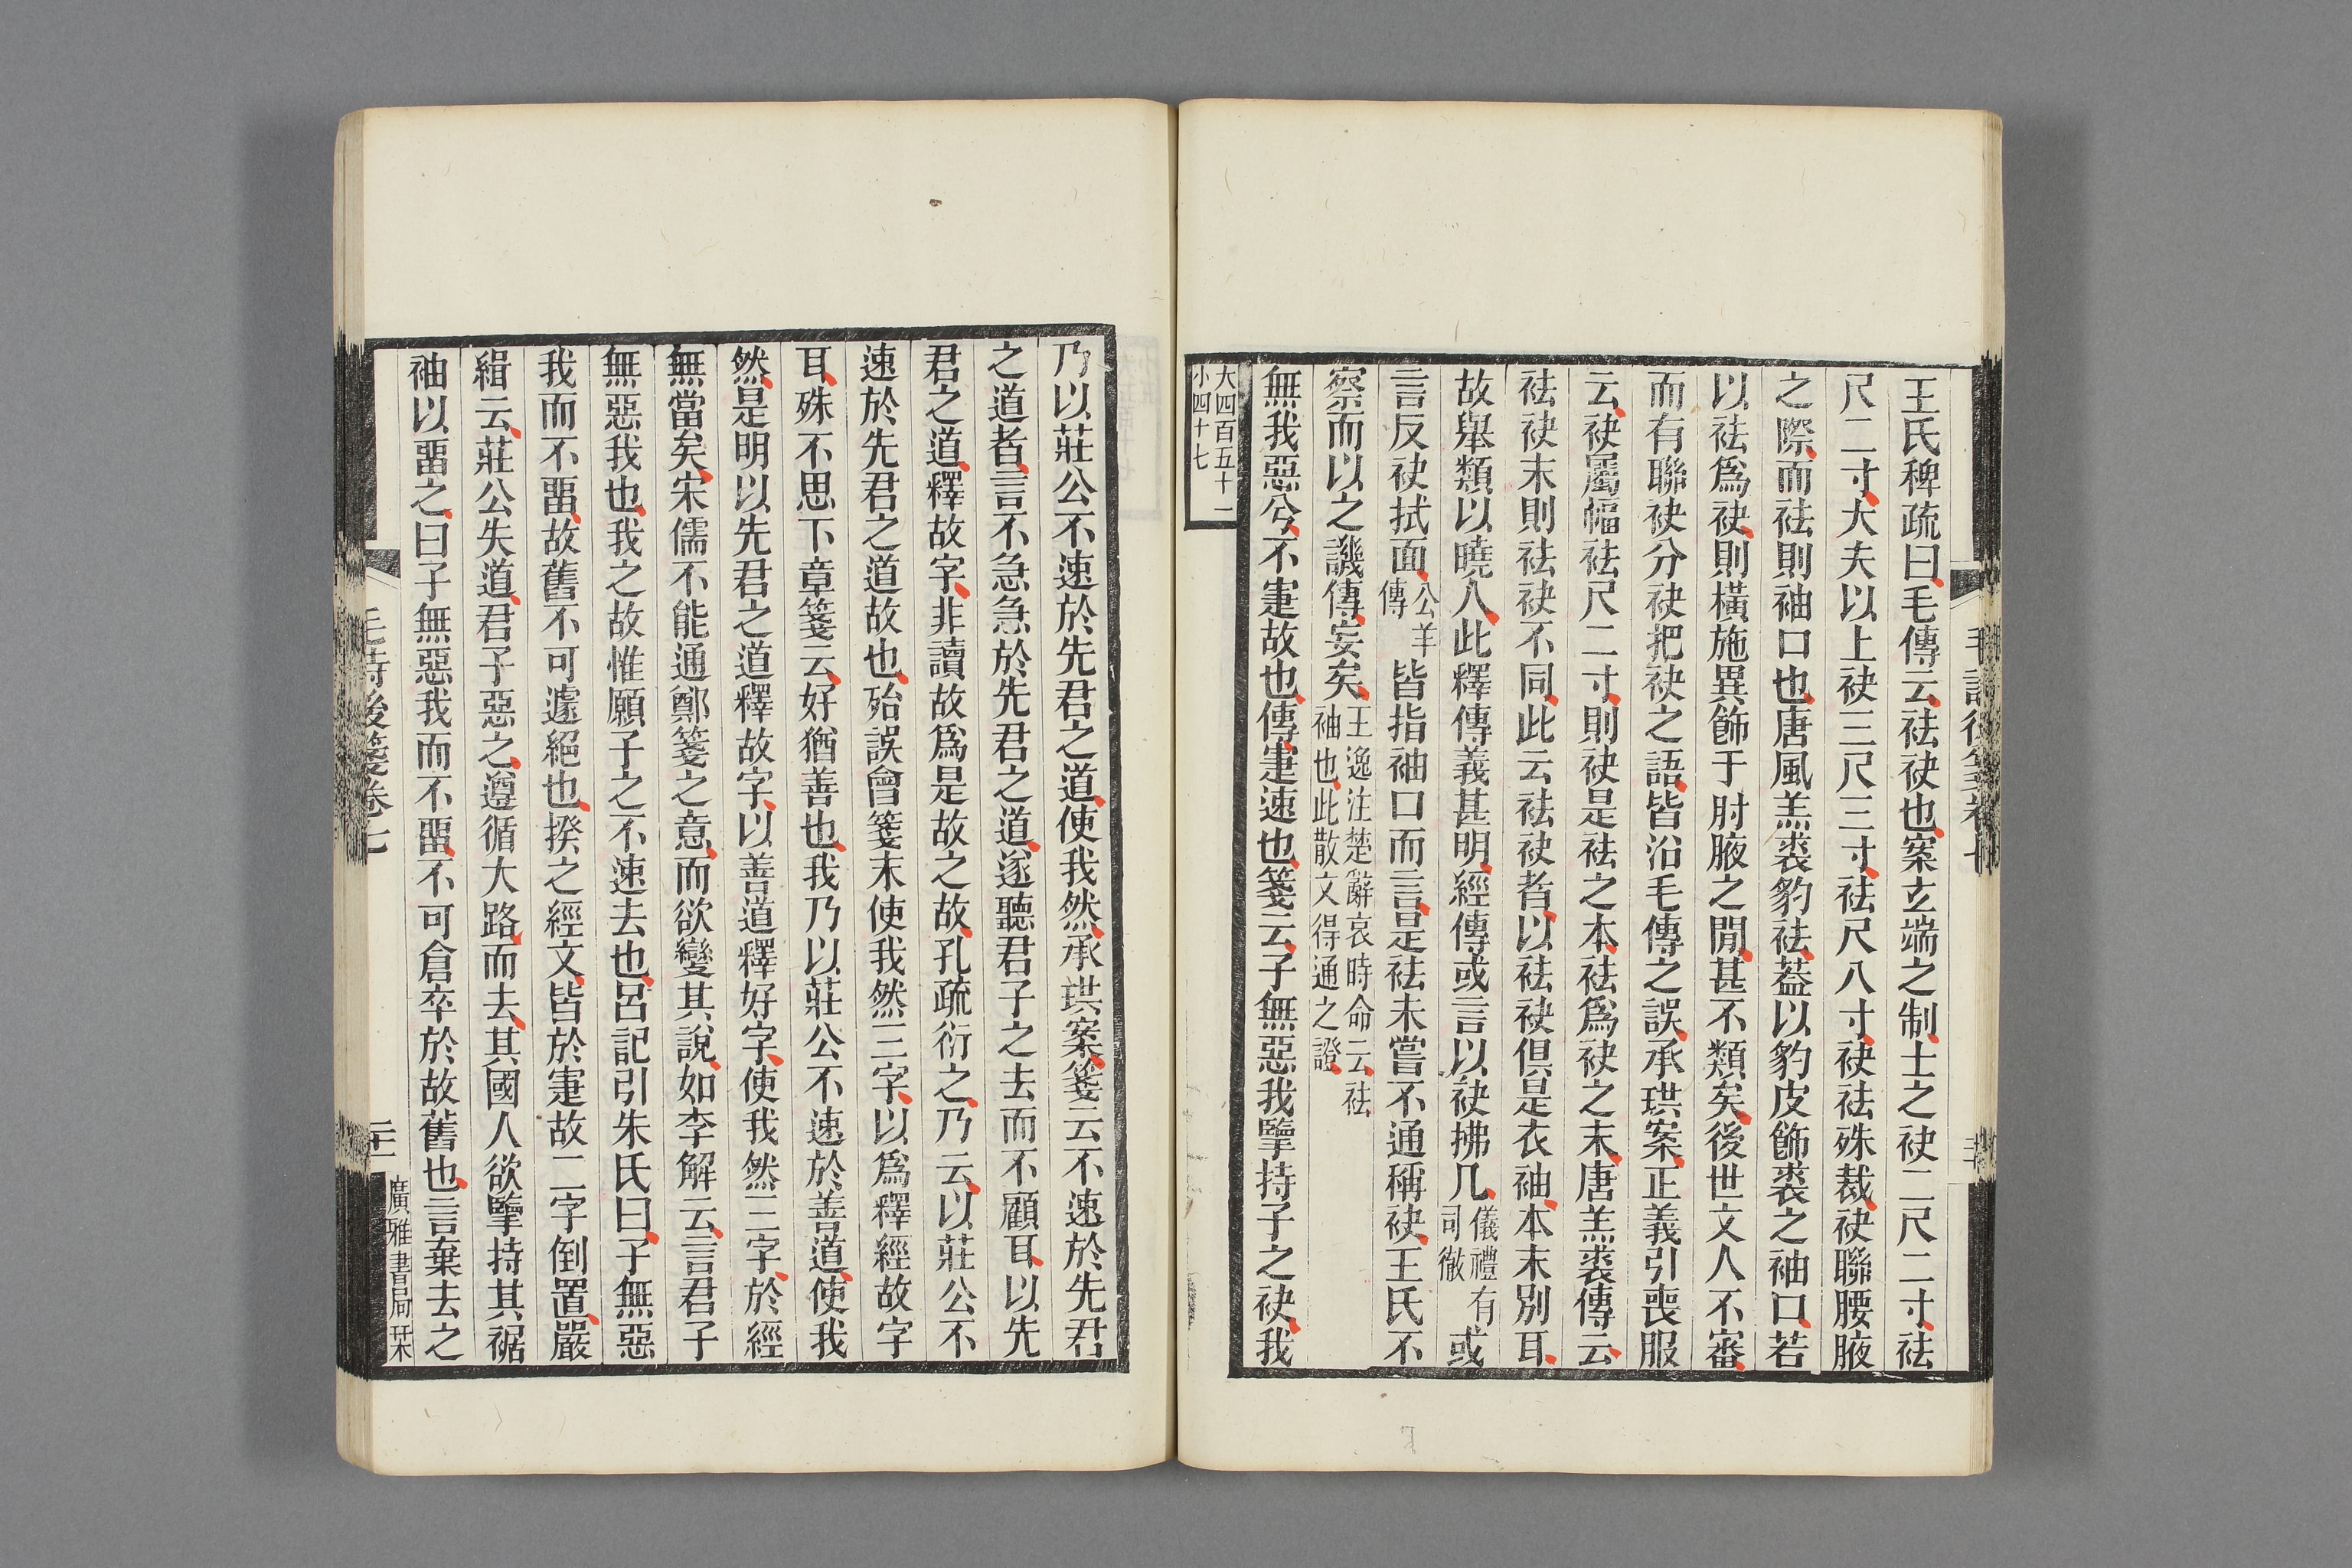 王氏稗疏曰毛傳云袪袂也案玄端之制士之袂二尺二寸袪
尺二寸大夫以上袂三尺三寸袪尺八寸袂袪殊裁袂聯腰腋
之際而袪則袖口也唐風羔裘豹袪葢以豹皮飾裘之袖口若
以袪爲袂則橫施異飾于肘腋之閒甚不類矣後世文人不審
而有聯袂分袂把袂之語皆沿毛傳之誤承珙案正義引喪服
云袂屬幅袪尺二寸則袂是袪之本袪爲袂之末唐羔裘傳云
袪袂末則袪袂不同此云袪袂者以袪袂俱是衣袖本末別耳
故舉類以曉人此釋傳義甚明經傳或言以袂拂几儀禮有司徹或
言反袂拭面公羊傳皆指袖口而言是袪未嘗不通稱袂王氏不
察而以之譏傳妄矣王逸注楚辭哀時命云袪袖也此散文得通之證
無我惡兮不寁故也傳寁速也箋云子無惡我擥持子之袂我
大四百五十一
小四十七
乃以莊公不速於先君之道使我然承珙案箋云不速於先君
之道者言不急急於先君之道遂聽君子之去而不顧耳以先
君之道釋故字非讀故爲是故之故孔疏衍之乃云以莊公不
速於先君之道故也殆誤會箋末使我然三字以爲釋經故字
耳殊不思下章箋云好猶善也我乃以莊公不速於善道使我
然是明以先君之道釋故字以善道釋好字使我然三字於經
無當矣宋儒不能通鄭箋之意而欲變其說如李解云言君子
無惡我也我之故惟願子之不速去也呂記引朱氏曰子無惡
我而不畱故舊不可遽絕也揆之經文皆於寁故二字倒置嚴
緝云莊公失道君子惡之遵循大路而去其國人欲擥持其裾
袖以畱之曰子無惡我而不畱不可倉卒於故舊也言棄去之
毛詩後箋卷七
廣雅書局栞